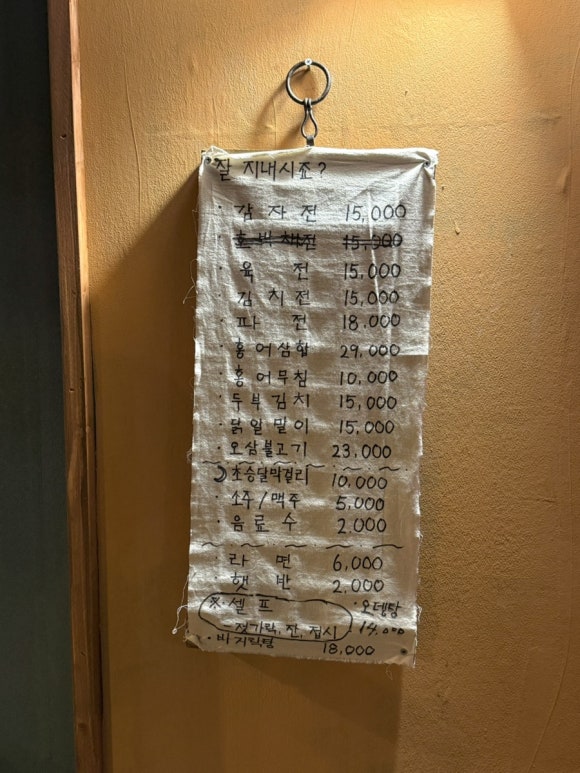 잘 지내시죠?
· 감 자 전 15,000
· 호 박 채전 15,000
· 육 전 15,000
· 김 치 전 15,000
· 파 전 18,000
· 홍 어 삼 합 29,000
· 홍 어 무 침 10,000
· 두 부 김 치 15,000
· 닭 알 말 이 15,000
· 오 삼 불 고 기 23,000
초승달막걸리 10,000
· 소주 / 맥주 5,000
· 음 료 수 2,000
· 라 면 6,000
· 햇 반 2,000
※ 셀 프 · 오뎅탕
- 젓가락, 잔, 접시 14,000
· 바지락탕 18,000